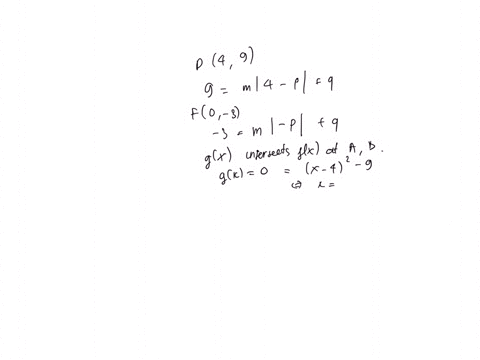 D (4, 9)
9 = m|4 - p| + q
F(0, -3)
-3 = m |-p| + q
g(x) intersects f(x) at A, B.
g(x) = 0 = (x-4)² - 9
⇔ x =